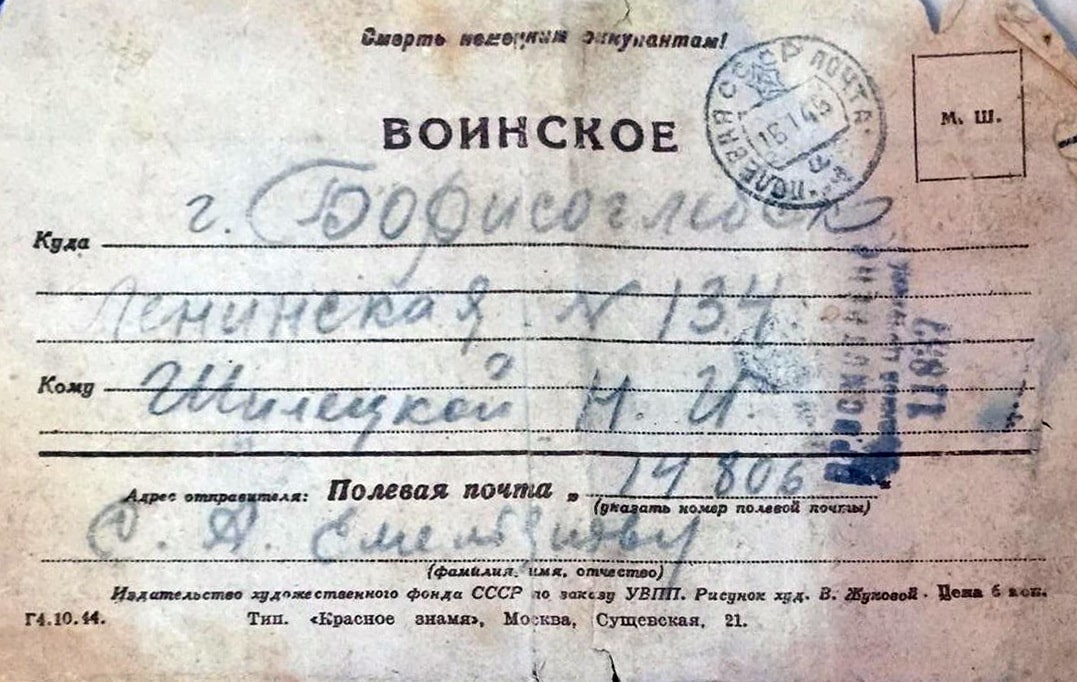 Смерть немецким оккупантам!
ВОИНСКОЕ
ПОЛЕВАЯ ПОЧТА
СССР
16 1 45
М. Ш.
Куда г. Борисоглебск
Ленинская N 134
Кому Шилецкой Н. И.
Адрес отправителя: Полевая почта „ 14806
(указать номер полевой почты)
(фамилия, имя, отчество)
ПРОСМОТРЕНО
Военной Цензурой
11837
Издательство художественного фонда СССР по заказу УВПП. Рисунок худ. В. Жуковой - Цена 6 коп.
Г4.10.44. Тип. «Красное знамя», Москва, Сущевская, 21.